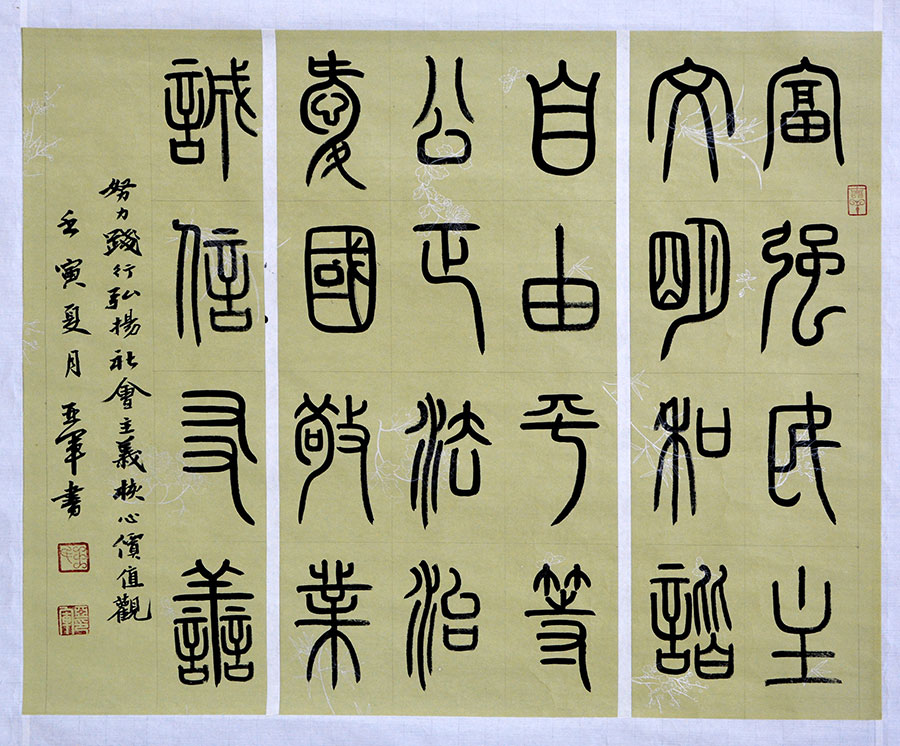 富强民主
文明和諧
自由平等
公正法治
愛國敬業
誠信友善
努力踐行弘揚社會主義核心價值觀
壬寅夏月亞軍書